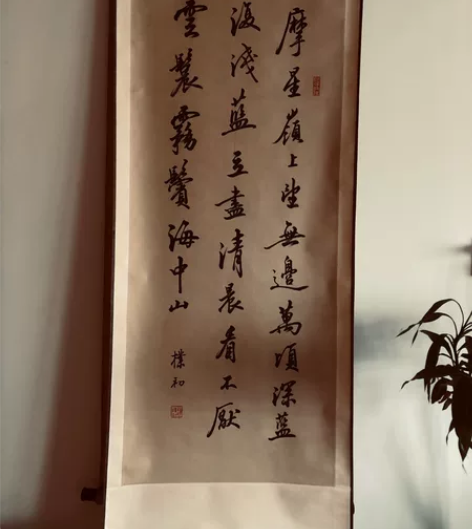 摩星嶺上望無邊萬頃深藍
復淺藍立盡清晨看不厭
雲鬟霧鬢海中山
樸和